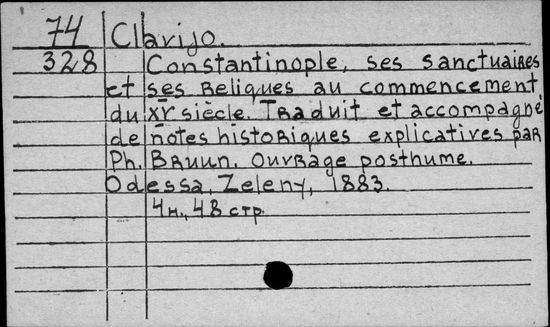 74 Clavijo.
328 Constantinople, ses sanctuaires
et ses Reliques au commencement
du XVe siècle. Traduit et accompagné
de notes historiques explicatives par
Ph. Bruun. Ouvrage posthume.
Odessa, Zeleny, 1883.
4 н., 48 стр.